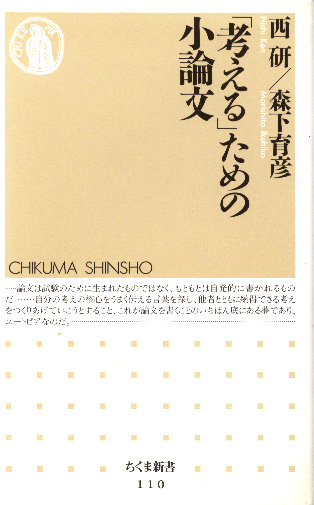 西 研／森下育彦
Nishi Ken
Morishita Ikuhiko
「考える」ための
小論文
CHIKUMA SHINSHO
……論文は試験のために生まれたものではなく、もともとは自発的に書かれるもの
だ。……自分の考えの核心をうまく伝える言葉を探し、他者とともに納得できる考え
をつくりあげていこうとすること、これが論文を書くことのいちばん底にある夢であり、
ユートピアなのだ。
ちくま新書
110